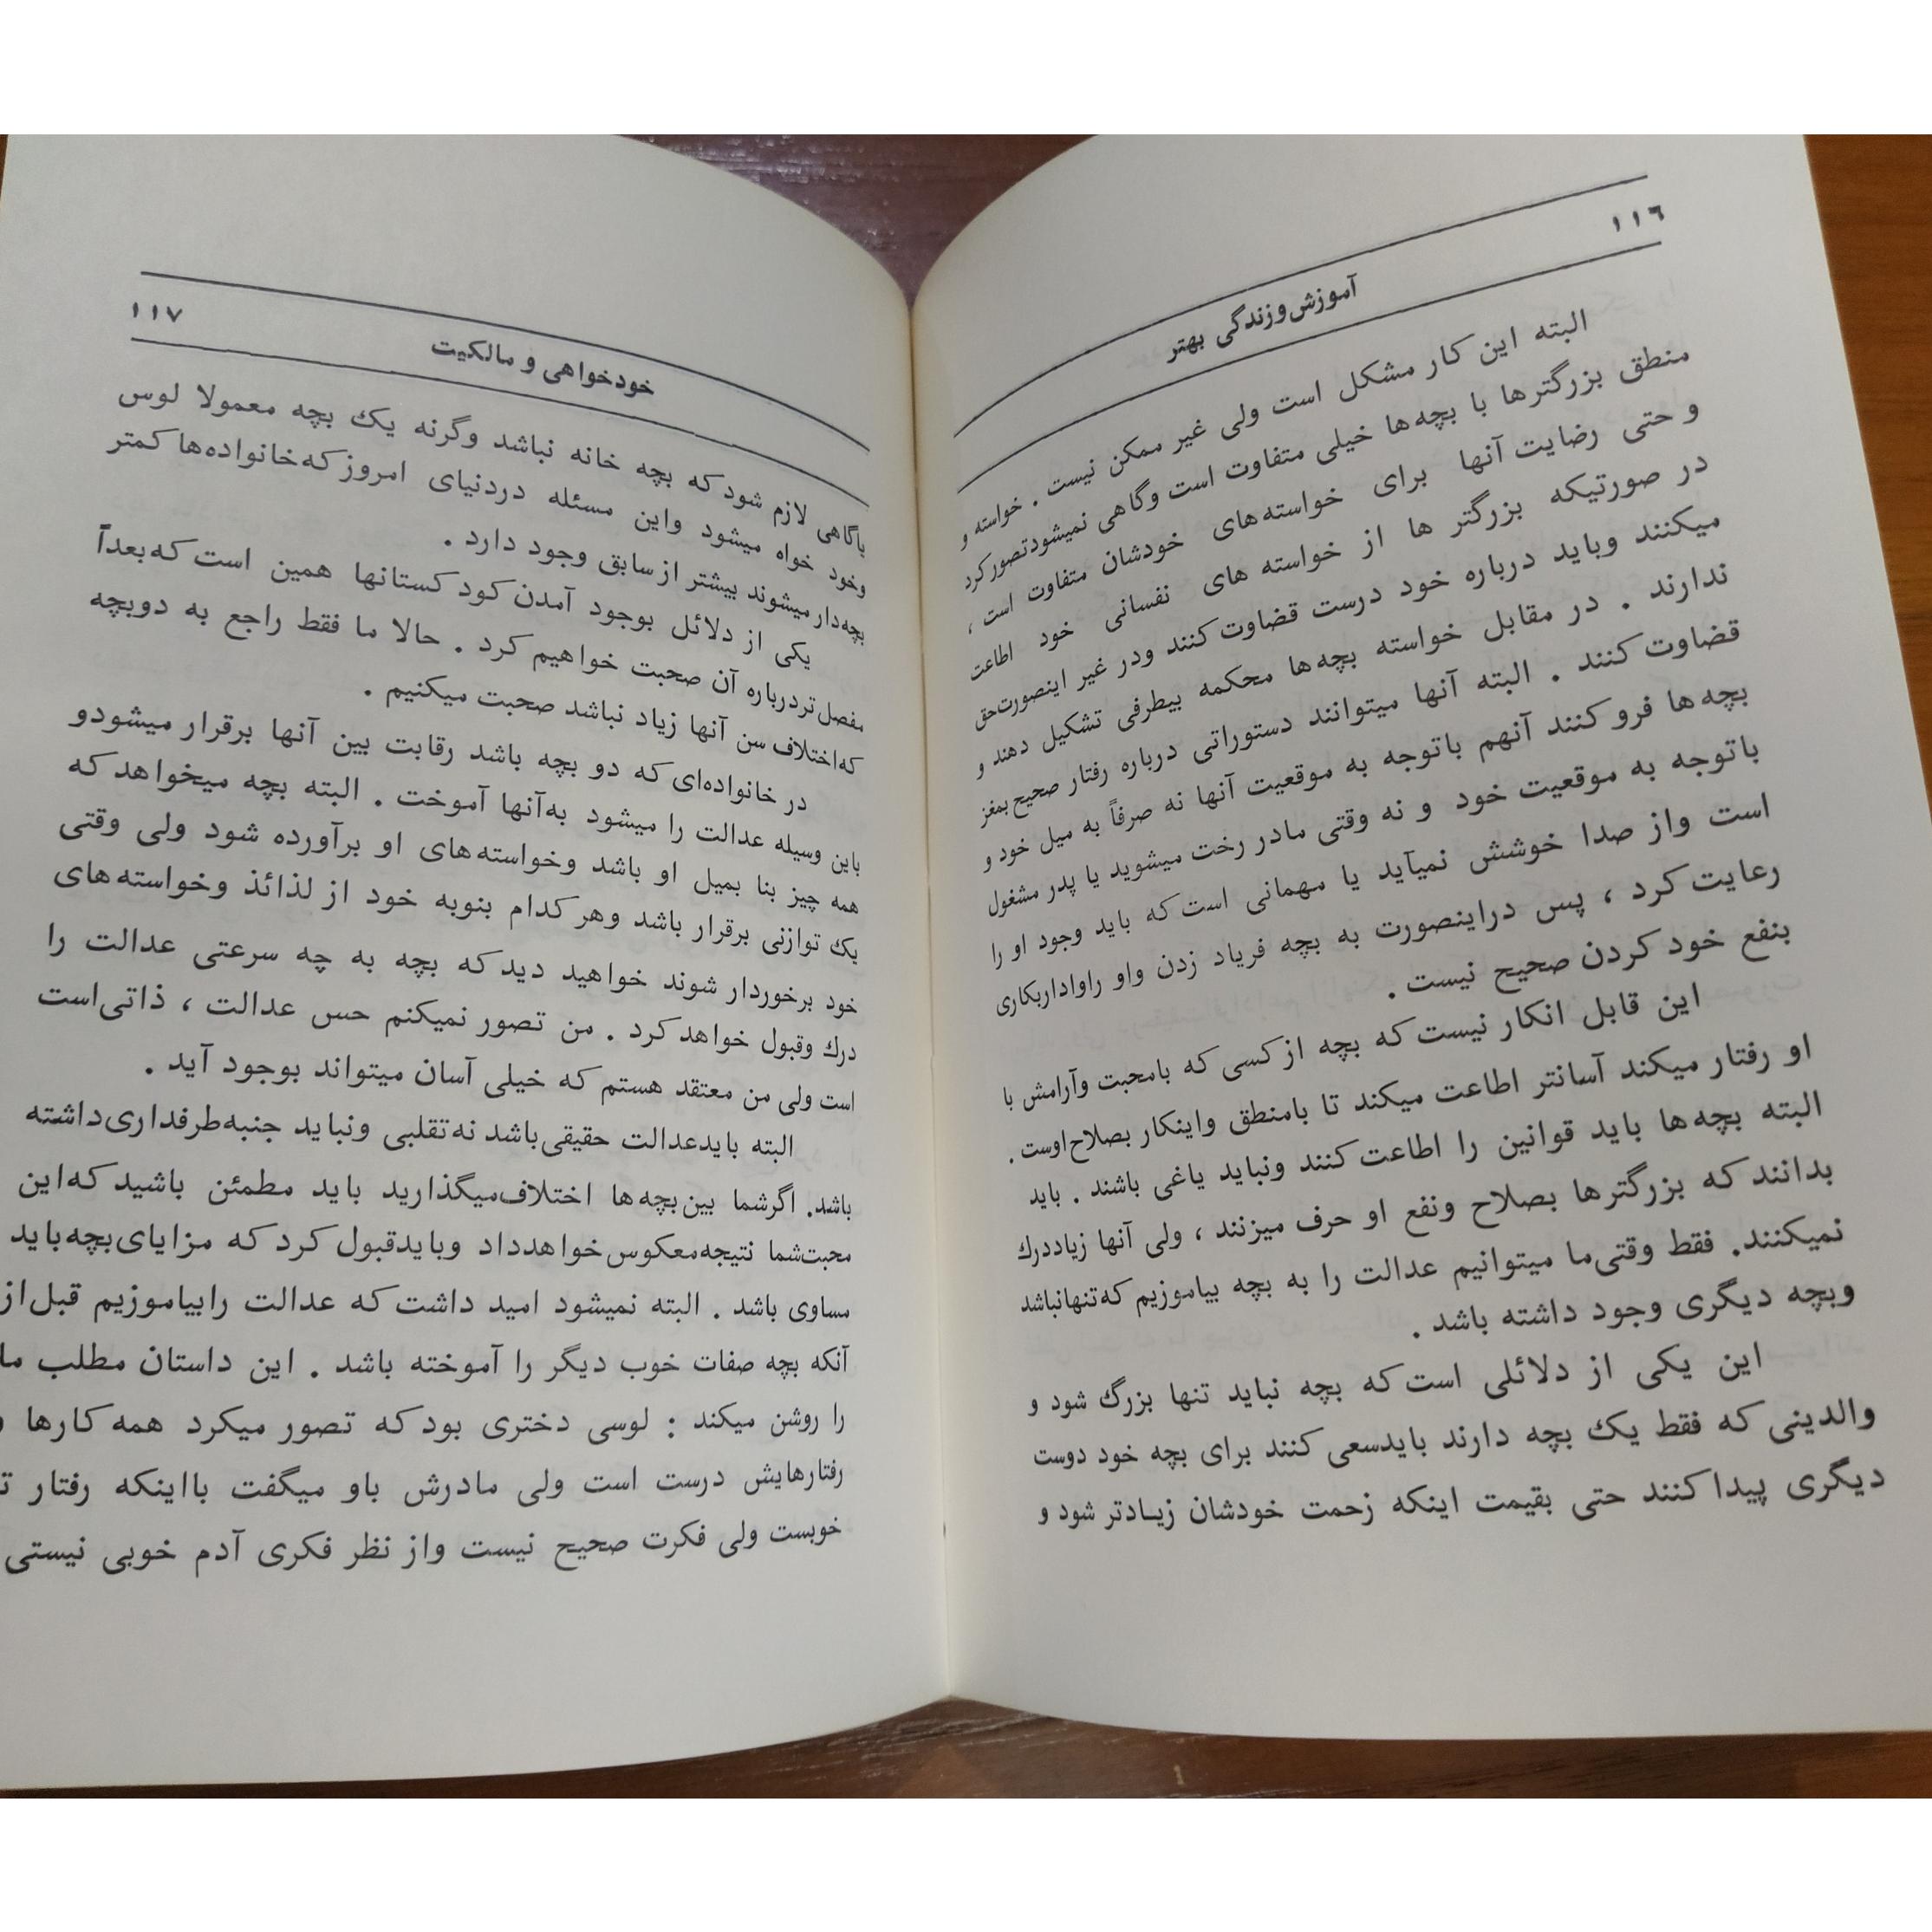 ١١٦
آموزش وزندگی بهتر
البته این کار مشکل است ولی غیر ممکن نیست . خواسته و
منطق بزرگترها با بچه‌ها خیلی متفاوت است وگاهی نمیشود تصور کرد
و حتی رضایت آنها برای خواسته‌های خودشان متفاوت است ،
در صورتیکه بزرگتر ها از خواسته های نفسانی خود اطاعت
میکنند وباید درباره خود درست قضاوت کنند ودر غیر اینصورت حق
ندارند . در مقابل خواسته بچه‌ها محکمه بیطرفی تشکیل دهند و
قضاوت کنند . البته آنها میتوانند دستوراتی درباره رفتار صحیح بمغز
بچه‌ها فرو کنند آنهم باتوجه به موقعیت آنها نه صرفاً به میل خود و
باتوجه به موقعیت خود و نه وقتی مادر رخت میشوید یا پدر مشغول
است واز صدا خوشش نمیآید یا مهمانی است که باید وجود او را
رعایت کرد ، پس دراینصورت به بچه فریاد زدن واو راواداربکاری
بنفع خود کردن صحیح نیست .
این قابل انکار نیست که بچه از کسی که بامحبت وآرامش با
او رفتار میکند آسانتر اطاعت میکند تا بامنطق واینکار بصلاح اوست .
البته بچه‌ها باید قوانین را اطاعت کنند ونباید یاغی باشند . باید
بدانند که بزرگترها بصلاح ونفع او حرف میزنند ، ولی آنها زیاددرك
نمیکنند. فقط وقتی‌ما میتوانیم عدالت را به بچه بیاموزیم که‌تنهانباشد
وبچه دیگری وجود داشته باشد .
این یکی از دلائلی است که بچه نباید تنها بزرگ شود و
والدینی که فقط یك بچه دارند بایدسعی کنند برای بچه خود دوست
دیگری پیدا کنند حتی بقیمت اینکه زحمت خودشان زیـادتر شود و
١١٧
خودخواهی و مالکیت
باگاهی لازم شود که بچه خانه نباشد وگرنه یك بچه معمولا لوس
وخود خواه میشود واین مسئله دردنیای امروز که‌خانواده‌ها کمتر
بچه‌دار میشوند بیشتر از سابق وجود دارد .
یکی از دلائل بوجود آمدن کودکستانها همین است که‌بعدآ
مفصل‌تر درباره آن صحبت خواهیم کرد . حالا ما فقط راجع به دوبچه
که‌اختلاف سن آنها زیاد نباشد صحبت میکنیم .
در خانواده‌ای که دو بچه باشد رقابت بین آنها برقرار میشودو
باین وسیله عدالت را میشود به‌آنها آموخت . البته بچه میخواهد که
همه چیز بنا بمیل او باشد وخواسته‌های او برآورده شود ولی وقتی
یك توازنی برقرار باشد وهر کدام بنوبه خود از لذائذ وخواسته‌های
خود برخوردار شوند خواهید دید که بچه به چه سرعتی عدالت را
درك وقبول خواهد کرد . من تصور نمیکنم حس عدالت ، ذاتی‌است
است ولی من معتقد هستم که خیلی آسان میتواند بوجود آید .
البته بایدعدالت حقیقی‌باشد نه‌تقلبی ونباید جنبه‌طرفداری‌داشته
باشد. اگرشما بین‌بچه‌ها اختلاف‌میگذارید باید مطمئن باشید که‌این
محبت‌شما نتیجه‌معکوس‌خواهدداد وبایدقبول کرد که مزایای‌بچه‌باید
مساوی باشد . البته نمیشود امید داشت که عدالت رابیاموزیم قبل‌از
آنکه بچه صفات خوب دیگر را آموخته باشد . این داستان مطلب ما
را روشن میکند : لوسی دختری بود که تصور میکرد همه کارها و
رفتارهایش درست است ولی مادرش باو میگفت بااینکه رفتار
خوبست ولی فکرت صحیح نیست واز نظر فکری آدم خوبی نیستی